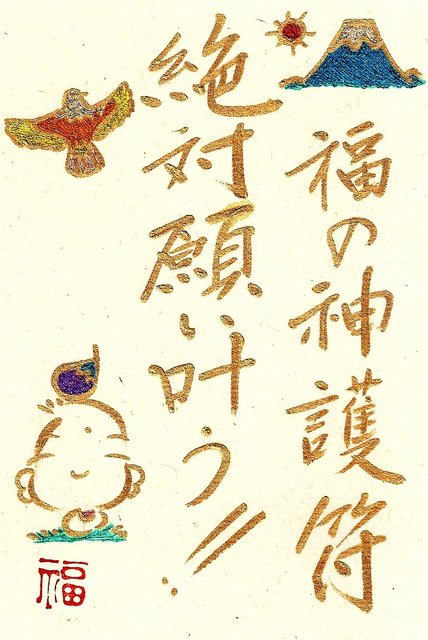 福の神護符
絶対願い叶う!!
福